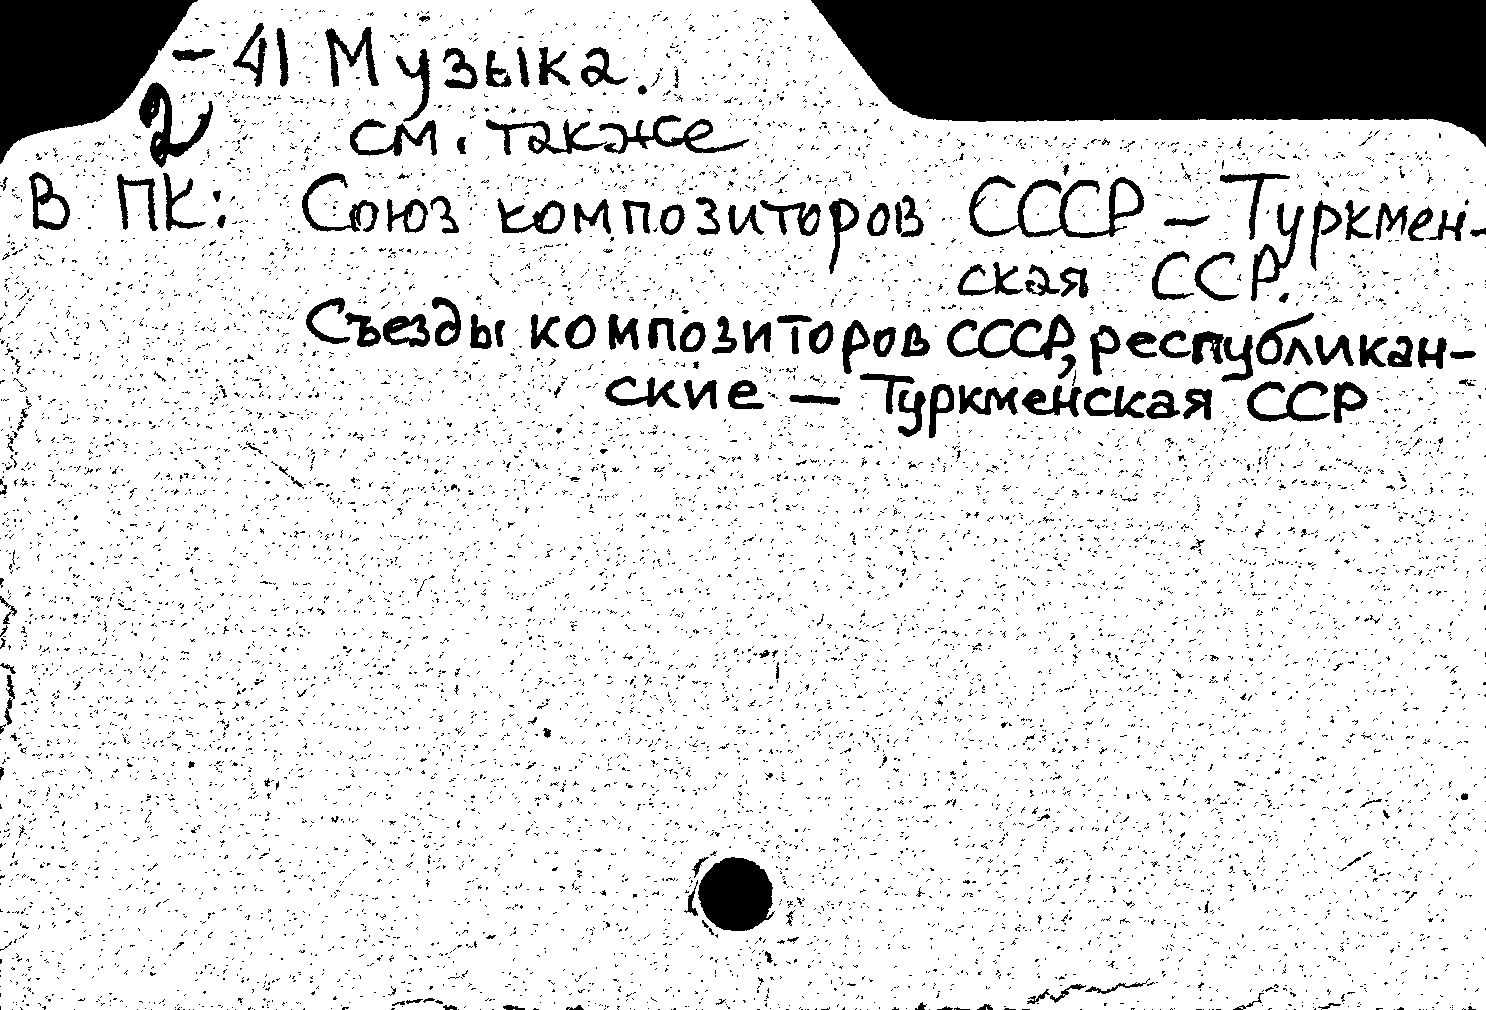 - 41 Музыка.
2 см. также
В ПК: Союз композиторов СССР — Туркмен-
ская ССР.
Съезды композиторов СССР, республикан-
ские — Туркменская ССР